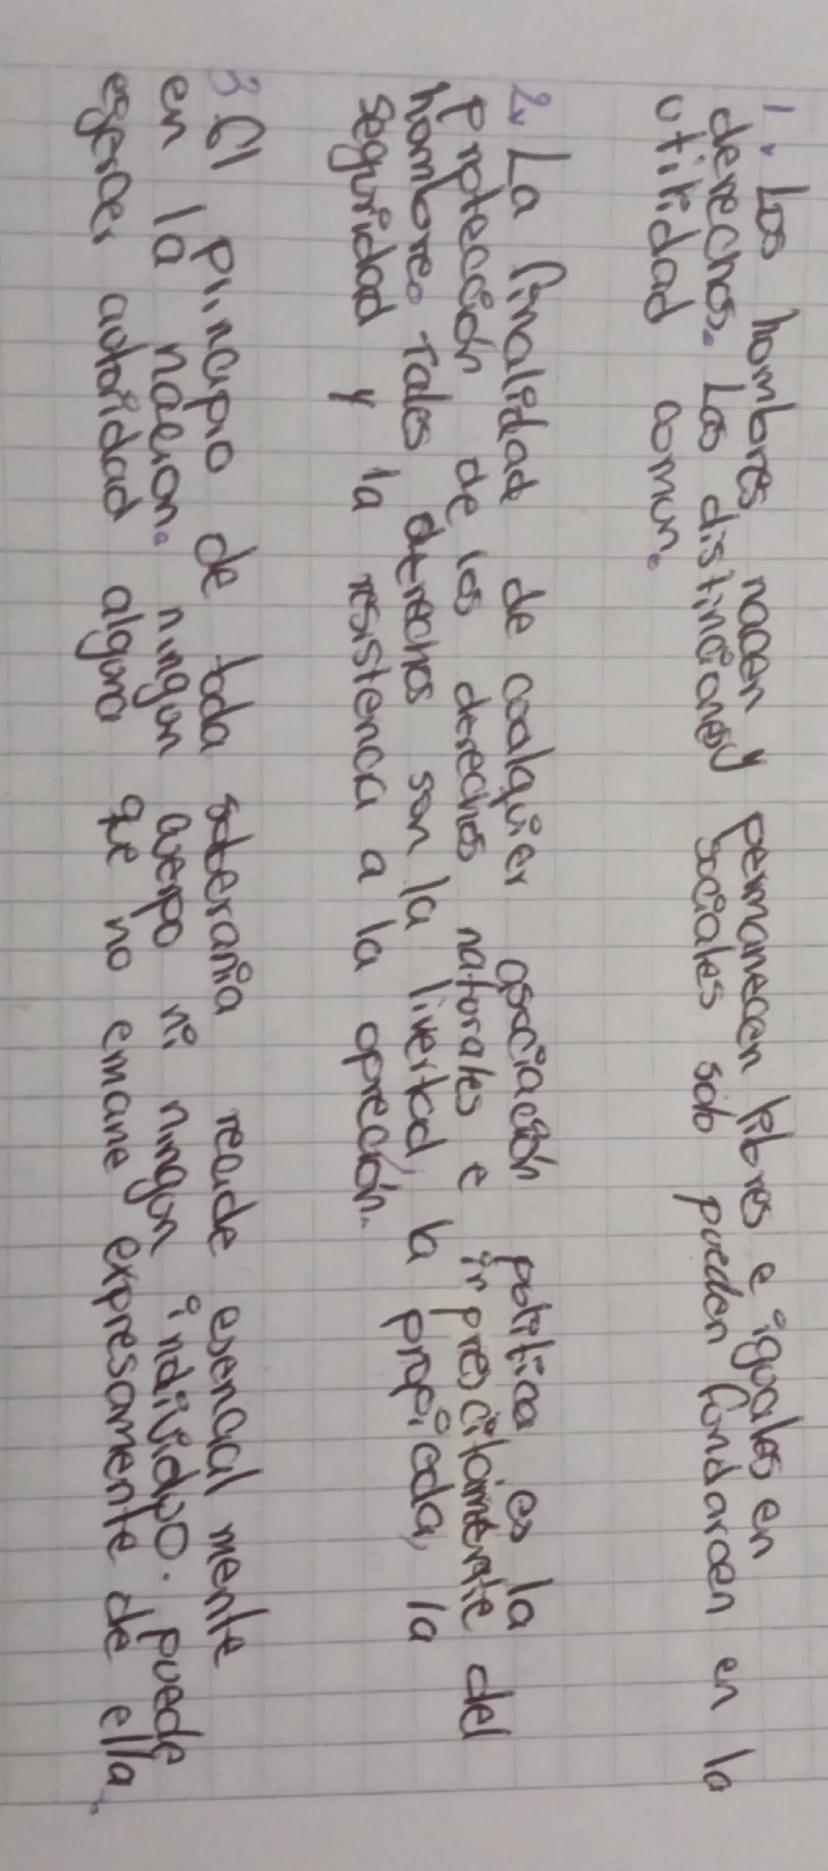 1. Los hombres nacen y permanecen libres e iguales en
derechos. Las distinciones y sociales solo pueden fundarcen en la
utilidad comun.
2. La finalidad de coalquier asociación politica es la
protección de los derechos naturales e inprescitamente del
hombre. Tales derechos son la livertad, la propiedada, la
seguridad y la resistencia a la opreción.
3 El principio de toda soberania recide esencial mente
en la nacion. ningun cuerpo ni ningun individuo. puede
egercer autoridad alguna que no emane expresamente de ella.